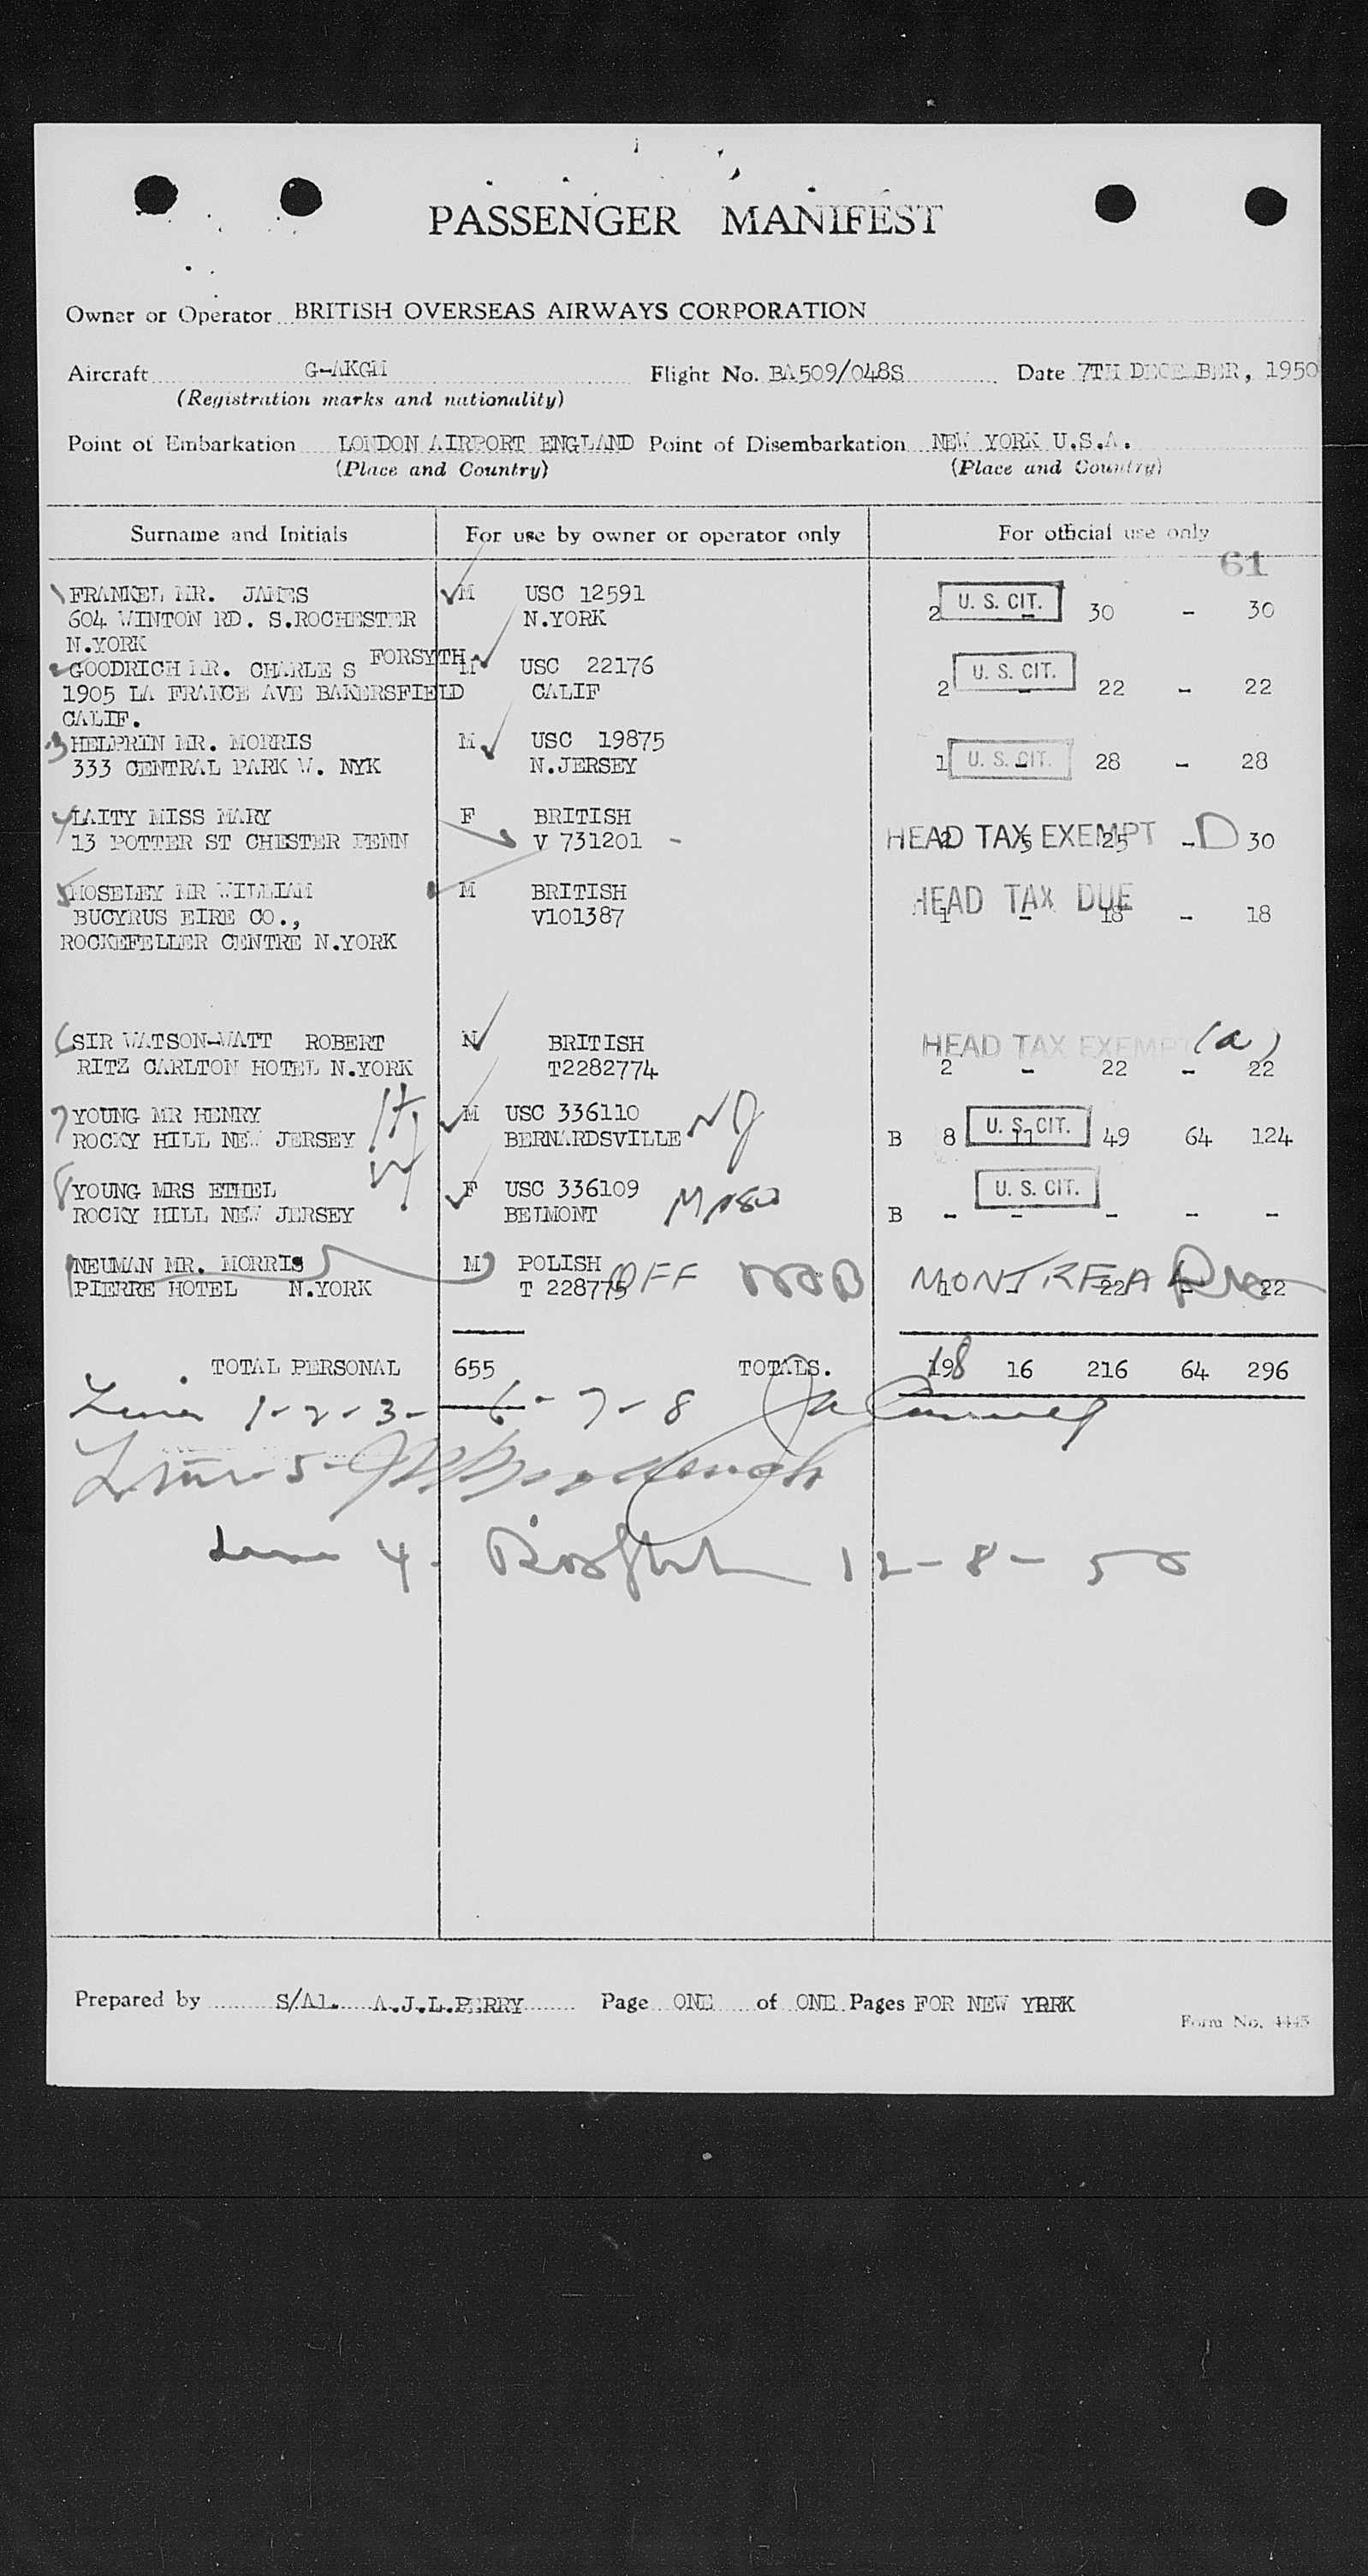 PASSENGER MANIFEST
Owner or Operator BRITISH OVERSEAS AIRWAYS CORPORATION
Aircraft G-AKGM Flight No. BA509/048S Date 7TH DECEMBER, 1950
(Registration marks and nationality)
Point of Embarkation LONDON AIRPORT ENGLAND Point of Disembarkation NEW YORK U.S.A.
(Place and Country) (Place and Country)
Surname and Initials For use by owner or operator only For official use only
61
1 FRANKEL MR. JAMES M USC 12591
604 WINTON RD. S.ROCHESTER N.YORK 2 U. S. CIT. - 30 - 30
N.YORK
2 GOODRICH MR. CHARLES FORSYTH M USC 22176
1905 LA FRANCE AVE BAKERSFIELD CALIF 2 U. S. CIT. - 22 - 22
CALIF.
3 HELPRIN MR. MORRIS M USC 19875
333 CENTRAL PARK W. NYK N.JERSEY 1 U. S. CIT. - 28 - 28
4 LAITY MISS MARY F BRITISH
13 POTTER ST CHESTER PENN V 731201 - HEAD TAX EXEMPT D 2 5 25 - 30
5 MOSELEY MR WILLIAM M BRITISH HEAD TAX DUE
BUCYRUS EIRE CO., V101387 1 - 18 - 18
ROCKEFELLER CENTRE N.YORK
6 SIR WATSON-WATT ROBERT M BRITISH HEAD TAX EXEMPT (a)
RITZ CARLTON HOTEL N.YORK T2282774 2 - 22 - 22
7 YOUNG MR HENRY M USC 336110 NJ
ROCKY HILL NEW JERSEY BERNARDSVILLE B 8 U. S. CIT. 11 49 64 124
8 YOUNG MRS ETHEL F USC 336109 Mass U. S. CIT.
ROCKY HILL NEW JERSEY BELMONT B - - - - -
NEUMAN MR. MORRIS M POLISH
PIERRE HOTEL N.YORK T 228775 OFF MONTREAL 1 - 22 - 22
TOTAL PERSONAL 655 TOTALS. 198 16 216 64 296
Line 1-2-3- 6-7-8
Line 5-
Line 4- 12-8-50
Prepared by S/A1. A.J.L.PERRY Page ONE of ONE Pages FOR NEW YRRK
Form No. 4445